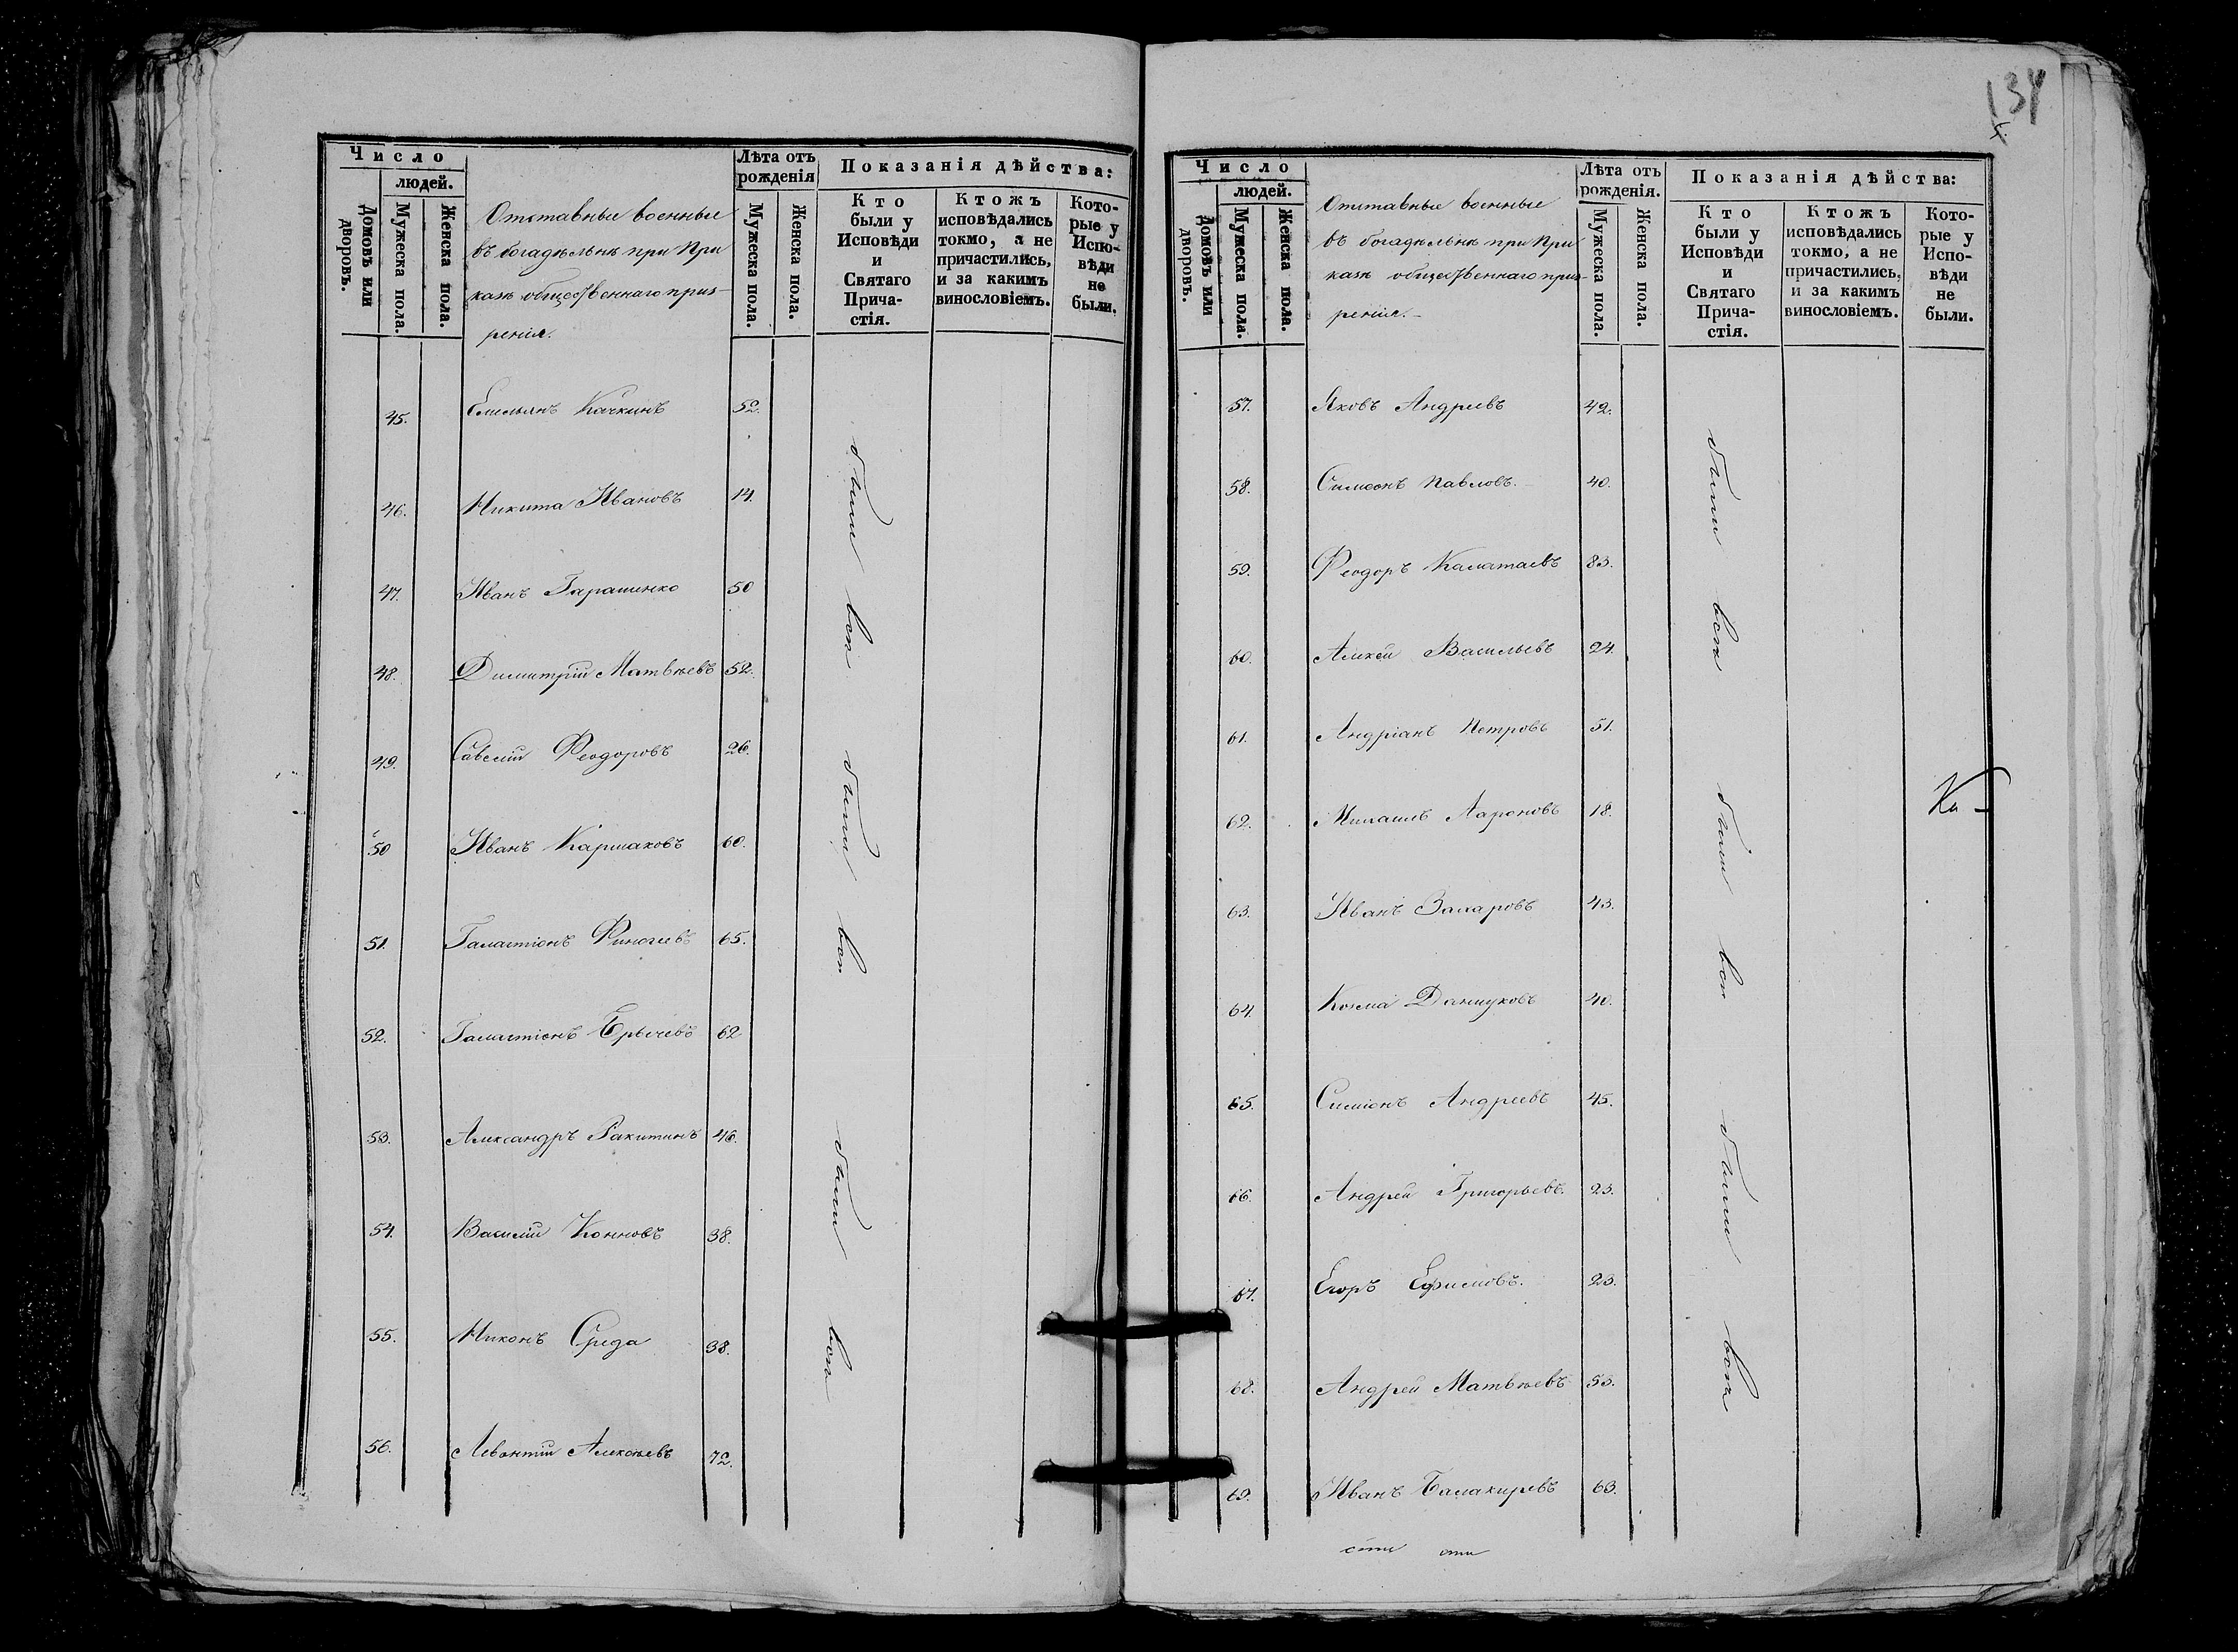 134
Число
людей.
Домовъ или дворовъ.
Мужеска пола.
Женска пола.
Отставные военные
въ богадѣльнѣ при При
казѣ общественнаго приз-
рѣнія.
Лѣта отъ рожденія
Мужеска пола.
Женска пола.
Показанія дѣйства:
Кто были у Исповѣди и Святаго Прича-стія.
Ктожъ исповѣдались токмо, а не причастились, и за какимъ винословіемъ.
Кото-рые у Испо-вѣди не были.
45. Емельянъ Качкинъ 52.
46. Никита Ивановъ 14.
47. Иванъ Гаращенко 50
48. Димитрій Матвѣевъ 52.
49. Савелій Феодоровъ 26.
50 Иванъ Кармаковъ 60.
51. Галактіонъ Финогеевъ 65.
52. Галактіонъ 62
53. Александръ Ракитинъ 46.
54. Василій Конновъ 38.
55. Никонъ Среда 38.
56. Левонтій Алексѣевъ 72.
были всѣ
были всѣ
были всѣ
Число
людей.
Домовъ или дворовъ.
Мужеска пола.
Женска пола.
Отставные военные
въ богадѣльнѣ при При
казѣ общественнаго приз-
рѣнія.
Лѣта отъ рожденія.
Мужеска пола.
Женска пола.
Показанія дѣйства:
Кто были у Исповѣди и Святаго Прича-стія.
Ктожъ исповѣдались токмо, а не причастились, и за какимъ винословіемъ.
Кото-рые у Испо-вѣди не были.
57. Яковъ Андреевъ 42.
58. Симеонъ Павловъ. 40.
59. Феодоръ Калатаевъ 83.
60. Алексѣй Васильевъ 24.
61. Андріанъ Петровъ 51.
62. Михаилъ Аароновъ 18.
63. Иванъ Захаровъ 43.
64. Козма Данщуковъ 40.
65. Симіонъ Андреевъ 45.
66. Андрей Григорьевъ. 23.
67. Егоръ Ефимовъ. 23.
68. Андрей Матвѣевъ 53.
69. Иванъ Балакиревъ 63.
были всѣ
были всѣ
были всѣ